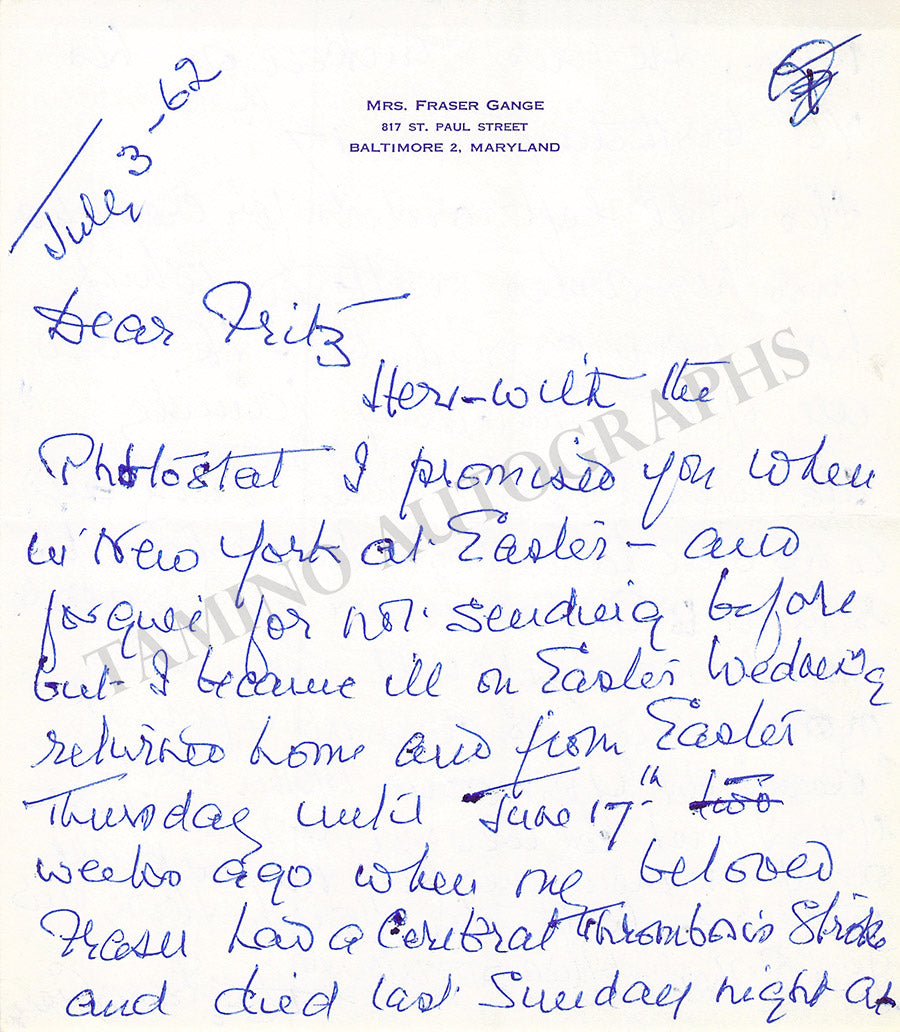 July 3-62
MRS. FRASER GANGE
817 ST. PAUL STREET
BALTIMORE 2, MARYLAND
Dear Fritz
Here-with the
Photostat I promised you when
in New York at Easter - and
forgive for not sending before
but I became ill on Easter
returned home and from Easter
Thursday until June 17th two
weeks ago when my beloved
Fraser had a Cerebral Thrombosis Stroke
and died last Sunday night at
TAMINO AUTOGRAPHS